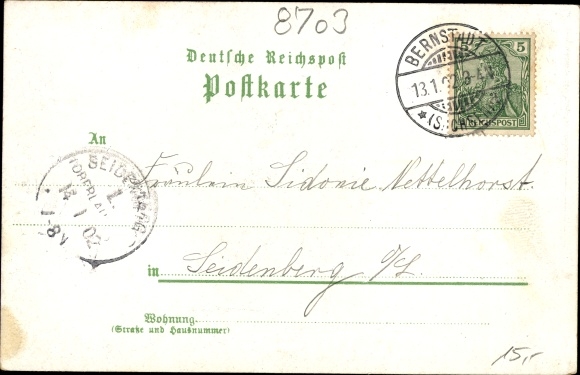 8703
Deutsche Reichspost
Postkarte
BERNSTADT
13.1.02 3-4
5
REICHSPOST
An
Fräulein Sidonie Nettelhorst.
SEIDENBERG
14 1 02
in Seidenberg O/L.
Wohnung
(Straße und Hausnummer)
15,-